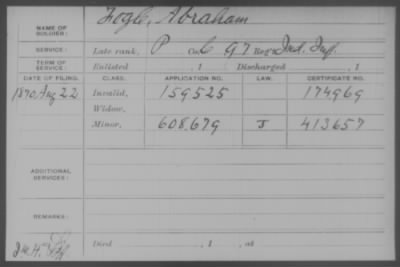 NAME OF SOLDIER: Fogle, Abraham
SERVICE: Late rank, P Co. C 97 Reg't Ind. Inf.
TERM OF SERVICE: Enlisted , 1 Discharged , 1
DATE OF FILING. CLASS. APPLICATION NO. LAW. CERTIFICATE NO.
1870 Aug 22 Invalid, 159525 174969
Widow,
Minor, 608.679 J 413657
ADDITIONAL SERVICES:
REMARKS:
Died , 1 , at